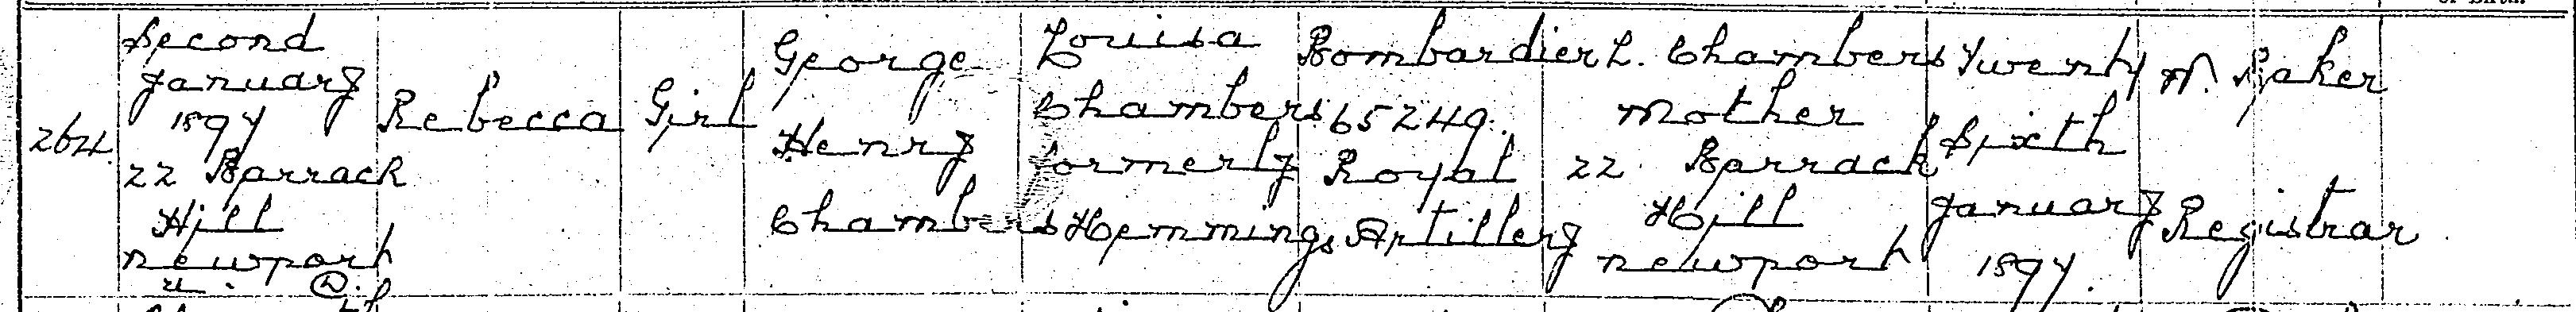 264.
Second
January
1897
22 Barrack
Hill
Newport
U. D.
Rebecca
Girl
George
Henry
Chambers
Louisa
Chambers
formerly
Hemmings
Bombardier
65249.
Royal
Artillery
L. Chambers
Mother
22 Barrack
Hill
Newport
Twenty
Sixth
January
1897.
W. Baker
Registrar.